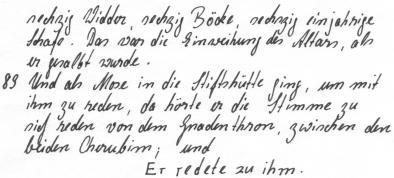 sechzig Widder, sechzig Böcke, sechzig einjährige
Schafe. Das war die Einweihung des Altars, als
er gesalbt wurde.
89 Und als Mose in die Stiftshütte ging, um mit
ihm zu reden, da hörte er die Stimme zu
sich reden von dem Gnadenthron, zwischen den
beiden Cherubim; und
Er redete zu ihm.